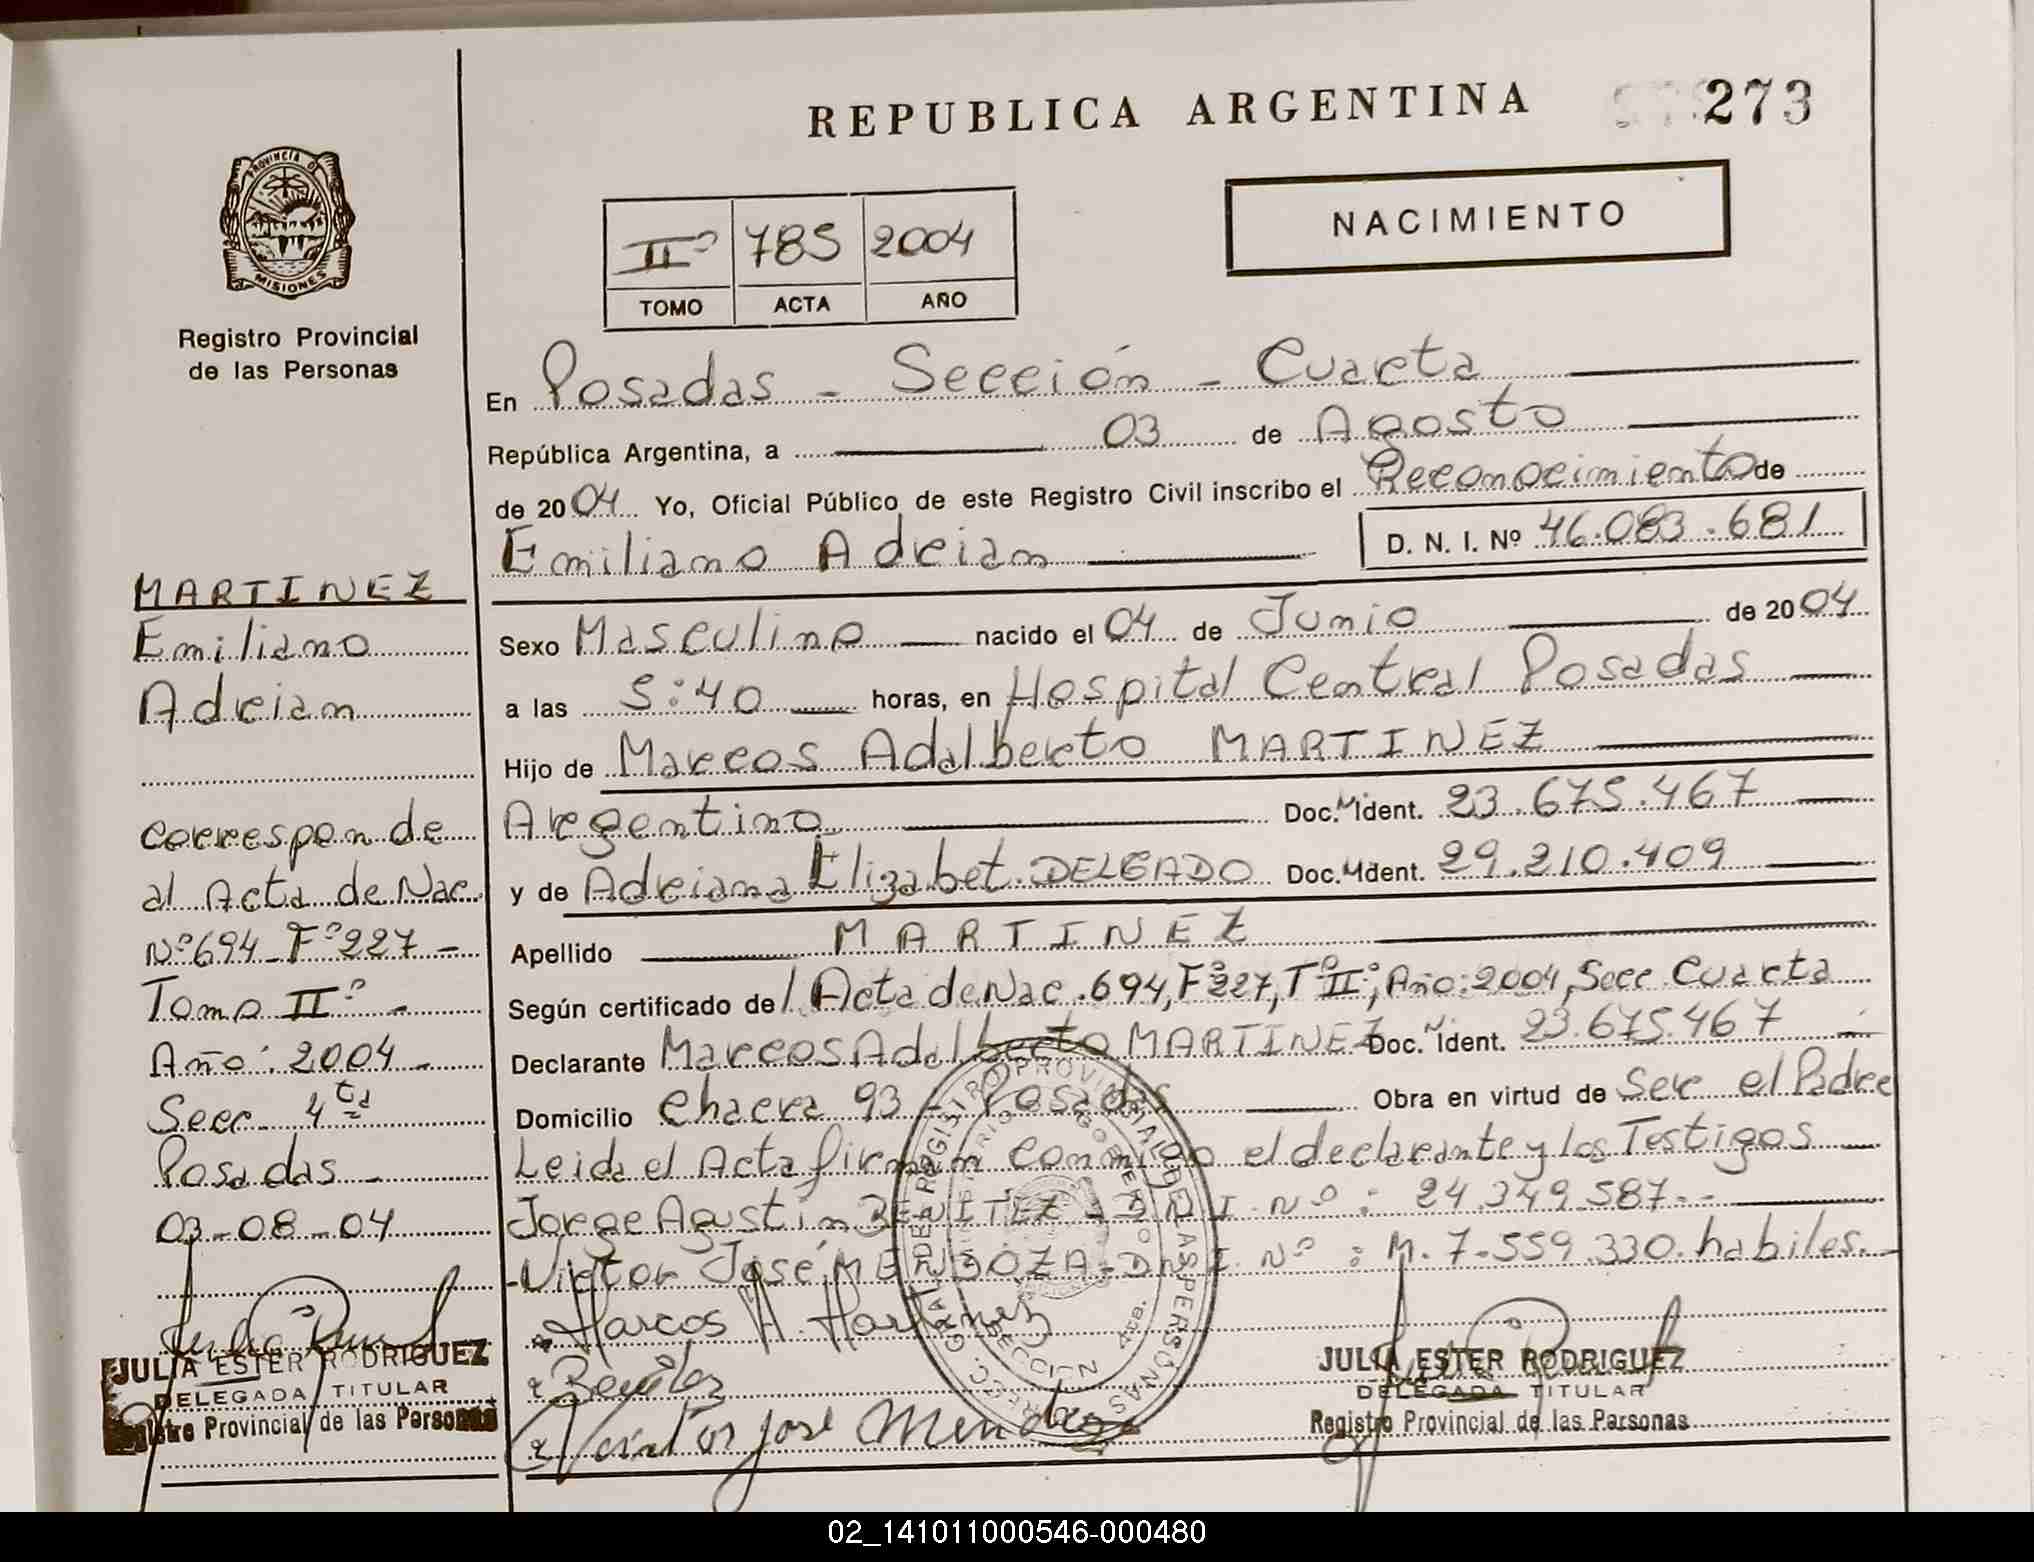 REPUBLICA ARGENTINA
273
PROVINCIA DE
MISIONES
Registro Provincial
de las Personas
NACIMIENTO
IIº 785 2004
TOMO ACTA AÑO
En Posadas - Sección - Cuarta
República Argentina, a 03 de Agosto
de 2004 Yo, Oficial Público de este Registro Civil inscribo el Reconocimiento de
Emiliano Adrian D. N. I. Nº 46.083.681
Sexo Masculino nacido el 04 de Junio de 2004
a las 5:40 horas, en Hospital Central Posadas
Hijo de Marcos Adalberto MARTINEZ
Argentino Doc. Ident. 23.675.467
y de Adriana Elizabet DELGADO Doc. Ident. 29.210.409
Apellido MARTINEZ
Según certificado de Acta de Nac. 694, Fº227, TºIIº, Año: 2004, Secc. Cuarta
Declarante Marcos Adalberto MARTINEZ Doc. Ident. 23.675.467
Domicilio Chacra 93 - Posadas Obra en virtud de Ser el Padre
Leida el Acta firman conmigo el declarante y los Testigos
Jorge Agustín BENITEZ - D.N.I. Nº: 24.349.587--
-Victor José MENDOZA - D.N.I. Nº: M. 7.559.330. habiles.-
Marcos A. Martinez
Benitez
Victor jose Mendoza
JULIA ESTER RODRIGUEZ
DELEGADA TITULAR
Registro Provincial de las Personas
MARTINEZ
Emiliano
Adrian
Correspon de
al Acta de Nac.
Nº694 - Fº227 -
Tomo IIº -
Año: 2004 -
Secc. 4ta
Posadas -
03-08-04
JULIA ESTER RODRIGUEZ
DELEGADA TITULAR
Registro Provincial de las Personas
02_141011000546-000480